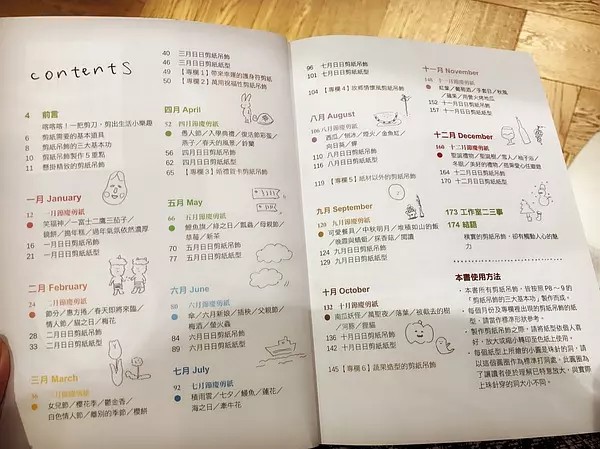 contents
4 前言
喀嗒喀！一把剪刀，剪出生活小樂趣
6 剪紙需要的基本道具
8 剪紙吊飾的三大基本功
10 剪紙吊飾製作5重點
11 懸掛精緻的剪紙吊飾
一月 January
12 一月節慶剪紙
笑福神／一富士二鷹三茄子／
鏡餅／過年糕／過年氣氛依然濃厚
16 一月日日剪紙吊飾
21 一月日日剪紙紙型
二月 February
24 二月節慶剪紙
節分／惠方捲／春天即將來臨／
情人節／貓之日／梅花
28 二月日日剪紙吊飾
33 二月日日剪紙紙型
三月 March
36 三月節慶剪紙
女兒節／櫻花季／鬱金香／
白色情人節／離別的季節／櫻餅
40 三月日日剪紙吊飾
46 三月日日剪紙紙型
49 【專欄1】帶來幸運的護身符剪紙
50 【專欄2】萬用祝福性剪紙吊飾
四月 April
52 四月節慶剪紙
愚人節／入學典禮／復活節彩蛋／
燕子／春天的風景／鈴蘭
56 四月日日剪紙吊飾
62 四月日日剪紙紙型
65 【專欄3】給禮賀卡剪紙吊飾
五月 May
66 五月節慶剪紙
鯉魚旗／綠之日／瓢蟲／母親節／
草莓／新茶
70 五月日日剪紙吊飾
77 五月日日剪紙紙型
六月 June
80 六月節慶剪紙
傘／六月新娘／插秧／父親節／
梅酒／螢火蟲
84 六月日日剪紙吊飾
89 六月日日剪紙紙型
七月 July
92 七月節慶剪紙
積雨雲／七夕／鰻魚／蓮花／
海之日／牽牛花
96 七月日日剪紙吊飾
101 七月日日剪紙紙型
104 【專欄4】玫瑰情懷風剪紙吊飾
八月 August
106 八月節慶剪紙
西瓜／刨冰／煙火／金魚缸／
向日葵／蟬
110 八月日日剪紙吊飾
116 八月日日剪紙紙型
119 【專欄5】紙材以外的剪紙吊飾
九月 September
120 九月節慶剪紙
可愛餐具／中秋明月／堆積如山的飯／
晚霞與蜻蜓／抹香鯨／閱讀
124 九月日日剪紙吊飾
129 九月日日剪紙紙型
十月 October
132 十月節慶剪紙
南瓜妖怪／萬聖夜／落葉／被截去的樹
／河豚／狸貓
136 十月日日剪紙吊飾
142 十月日日剪紙紙型
145 【專欄6】蔬果造型的剪紙吊飾
十一月 November
148 十一月節慶剪紙
紅葉／葡萄酒／手套日／秋風
／蘋果／用營火烤地瓜
152 十一月日日剪紙吊飾
157 十一月日日剪紙紙型
十二月 December
160 十二月節慶剪紙
聖誕禮物／聖誕樹／雪人／柚子浴／
冬眠／美好的禮物／翅果愛心任意遊
164 十二月日日剪紙吊飾
170 十二月日日剪紙紙型
173 工作室二三事
174 結語
樸實的剪紙吊飾，卻有觸動人心的
魅力
本書使用方法
・本書所有剪紙吊飾，皆按照 P8～9 的
「剪紙吊飾的三大基本功」製作而成。
・每個月份及專欄裡出現的剪紙吊飾的紙
型，請當作標準形狀參考。
・製作剪紙吊飾之際，請將紙型依個人喜
好，放大或縮小轉印至色紙上使用。
・每個紙型上所繪的小圓是珠針的洞，請
以這個圓圈作為標準打洞處。此圓圈為
了讓讀者便於理解已特意放大，與實際
上珠針穿的洞大小不同。